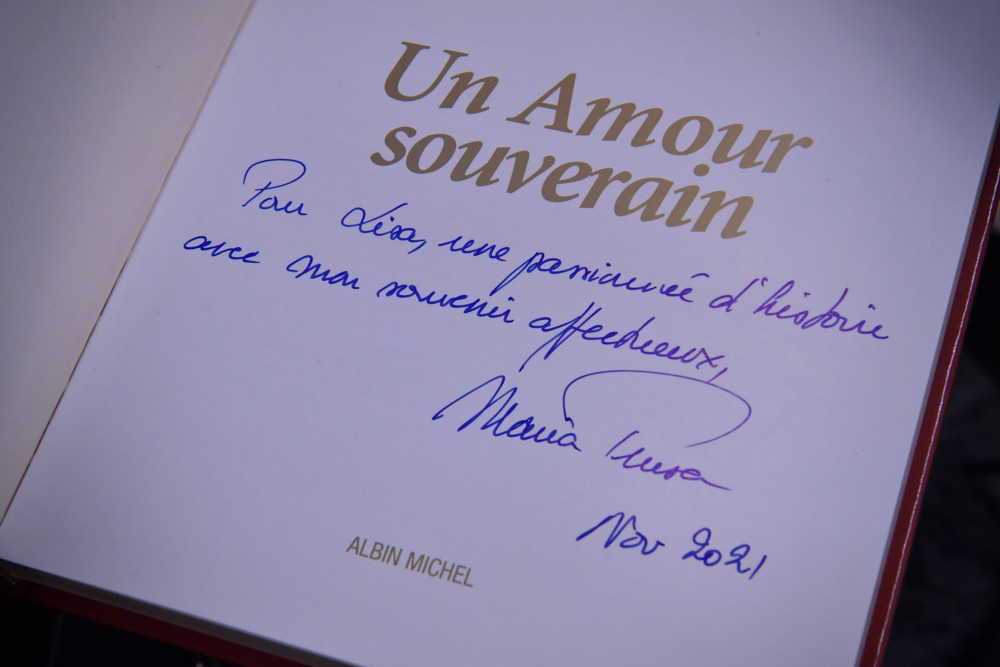 Un Amour
souverain
Pour Lisa, une passionnée d'histoire
avec mon souvenir affectueux,
Maria
Nov 2021
ALBIN MICHEL